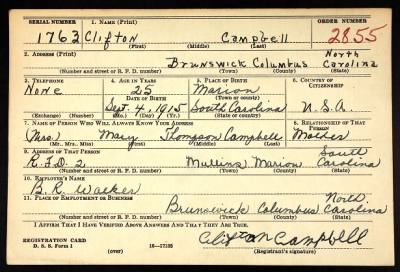 SERIAL NUMBER 1. NAME (Print) ORDER NUMBER
1763 Clifton Campbell 2855
(First) (Middle) (Last)
2. ADDRESS (Print)
North
Brunswick Columbus Carolina
(Number and street or R. F. D. number) (Town) (County) (State)
3. TELEPHONE 4. AGE IN YEARS 5. PLACE OF BIRTH 6. COUNTRY OF CITIZENSHIP
None 25 Marion
DATE OF BIRTH
Sept. 4, 1915 South Carolina U.S.A.
(Exchange) (Number) (Mo.) (Day) (Yr.) (State or country)
7. NAME OF PERSON WHO WILL ALWAYS KNOW YOUR ADDRESS 8. RELATIONSHIP OF THAT PERSON
(Mrs.) Mary Thompson Campbell Mother
(Mr., Mrs., Miss) (First) (Middle) (Last)
9. ADDRESS OF THAT PERSON
South
R.F.D. 2 Mullins, Marion Carolina
(Number and street or R. F. D. number) (Town) (County) (State)
10. EMPLOYER'S NAME
B. R. Walker
11. PLACE OF EMPLOYMENT OR BUSINESS
North
Brunswick Columbus Carolina
(Number and street or R. F. D. number) (Town) (County) (State)
I AFFIRM THAT I HAVE VERIFIED ABOVE ANSWERS AND THAT THEY ARE TRUE.
REGISTRATION CARD
D. S. S. Form 1 (over) 16—17105
Clifton Campbell
(Registrant's signature)